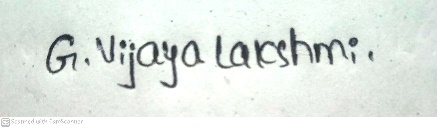 G. Vijaya Lakshmi.
Scanned with CamScanner